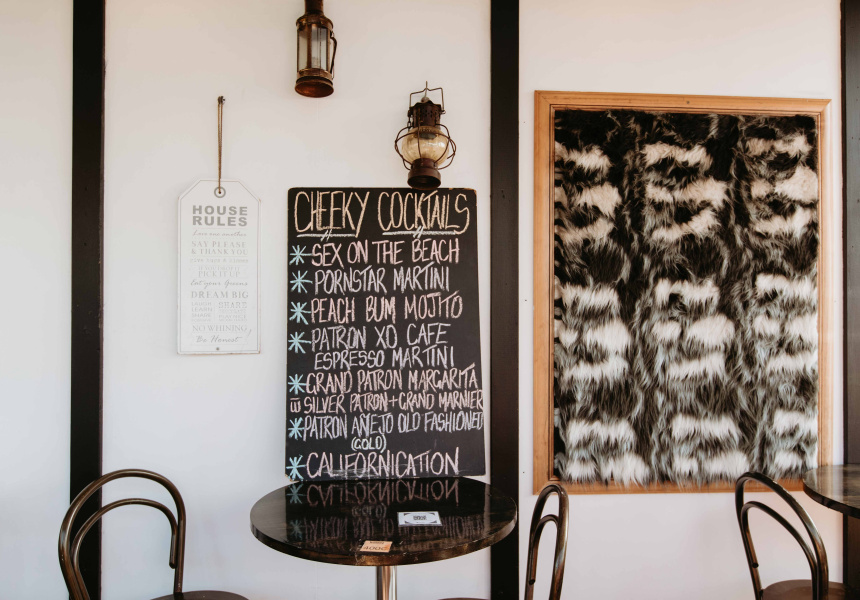 HOUSE
RULES
SAY PLEASE
& THANK YOU
PICK IT UP
DREAM BIG
NO WHINING
Be Honest
CHEEKY COCKTAILS
SEX ON THE BEACH
PORNSTAR MARTINI
PEACH BUM MOJITO
PATRON XO CAFE
ESPRESSO MARTINI
GRAND PATRON MARGARITA
w̅ SILVER PATRON + GRAND MARNIER
PATRON AÑEJO OLD FASHIONED
(GOLD)
CALIFORNICATION